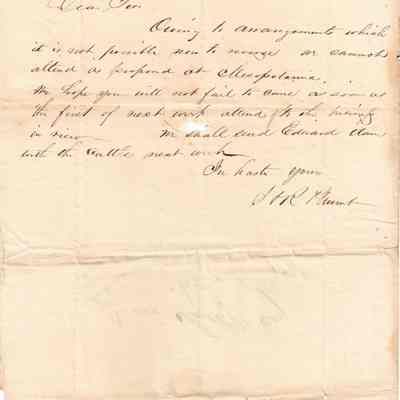 Dear Sir
Owing to arrangements which
it is not possible now to we cannot
attend as proposed at Mesopotamia.
We hope you will not fail to come as soon as
the first of next week attend to the
in view We shall send Edward
with the cattle next week
In haste yours
S & R